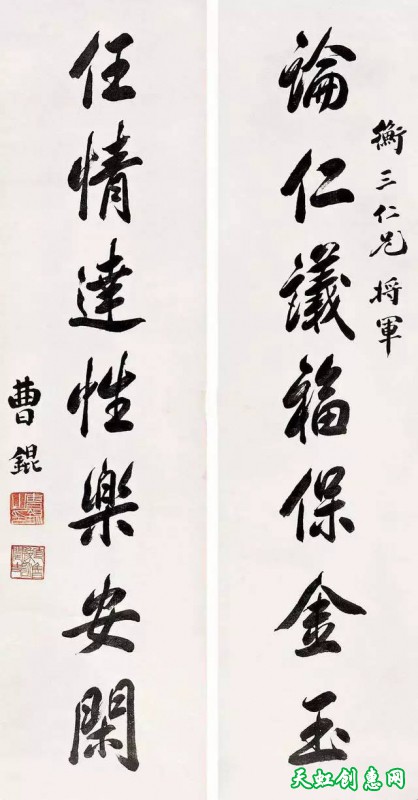 衡三仁兄將軍
論仁議福保金玉
任情達性樂安閑
曹錕
天虹创惠网